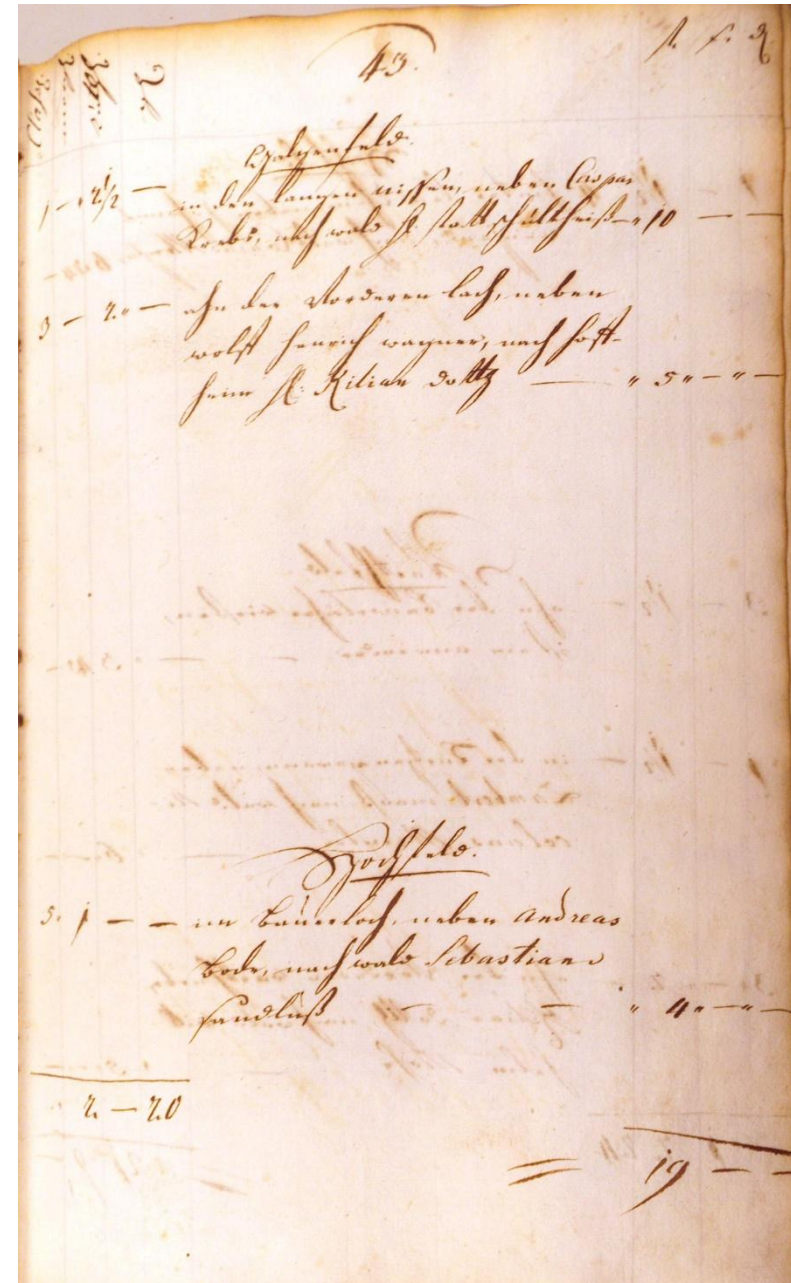 43.
Galgenfeld.
1 — 2 1/2 — in den langen nissen, neben Caspar
Krebs, nach wald H. stattschultheiß — " 10 — —
3 — 2 " — ahn der Vorderen lach, neben
wolff henrich wagner, nach hoff-
heim H. Kilian doltz — " 5 " — " —
Hochfeld.
5. 1 — — im bauerloch, neben Andreas
Bode, nach wald Sebastian
sandluß — — " 4 " — " —
2. — 20
= 19 — —